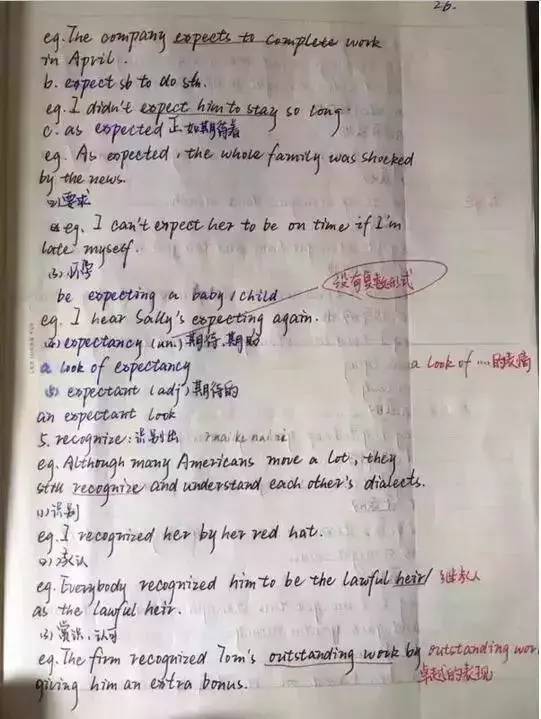 26.
eg. The company expects to complete work
in April.
b. expect sb to do sth.
eg. I didn't expect him to stay so long.
c. as expected 正如期待着
eg. As expected, the whole family was shocked
by the news.
(2) 要求
eg. I can't expect her to be on time if I'm
late myself.
(3) 怀孕
be expecting a baby / child
没有复数形式
eg. I hear Sally's expecting again.
expectancy (un.) 期待，期盼
a look of expectancy
a look of .... 的表情
expectant (adj.) 期待的
an expectant look
5. recognize: 识别出
eg. Although many Americans move a lot, they
still recognize and understand each other's dialects.
(1) 识别
eg. I recognized her by her red hat.
(2) 承认
eg. Everybody recognized him to be the lawful heir / 继承人
as the lawful heir.
(3) 赏识，认可
eg. The firm recognized Tom's outstanding work by outstanding wor
giving him an extra bonus. 卓越的表现